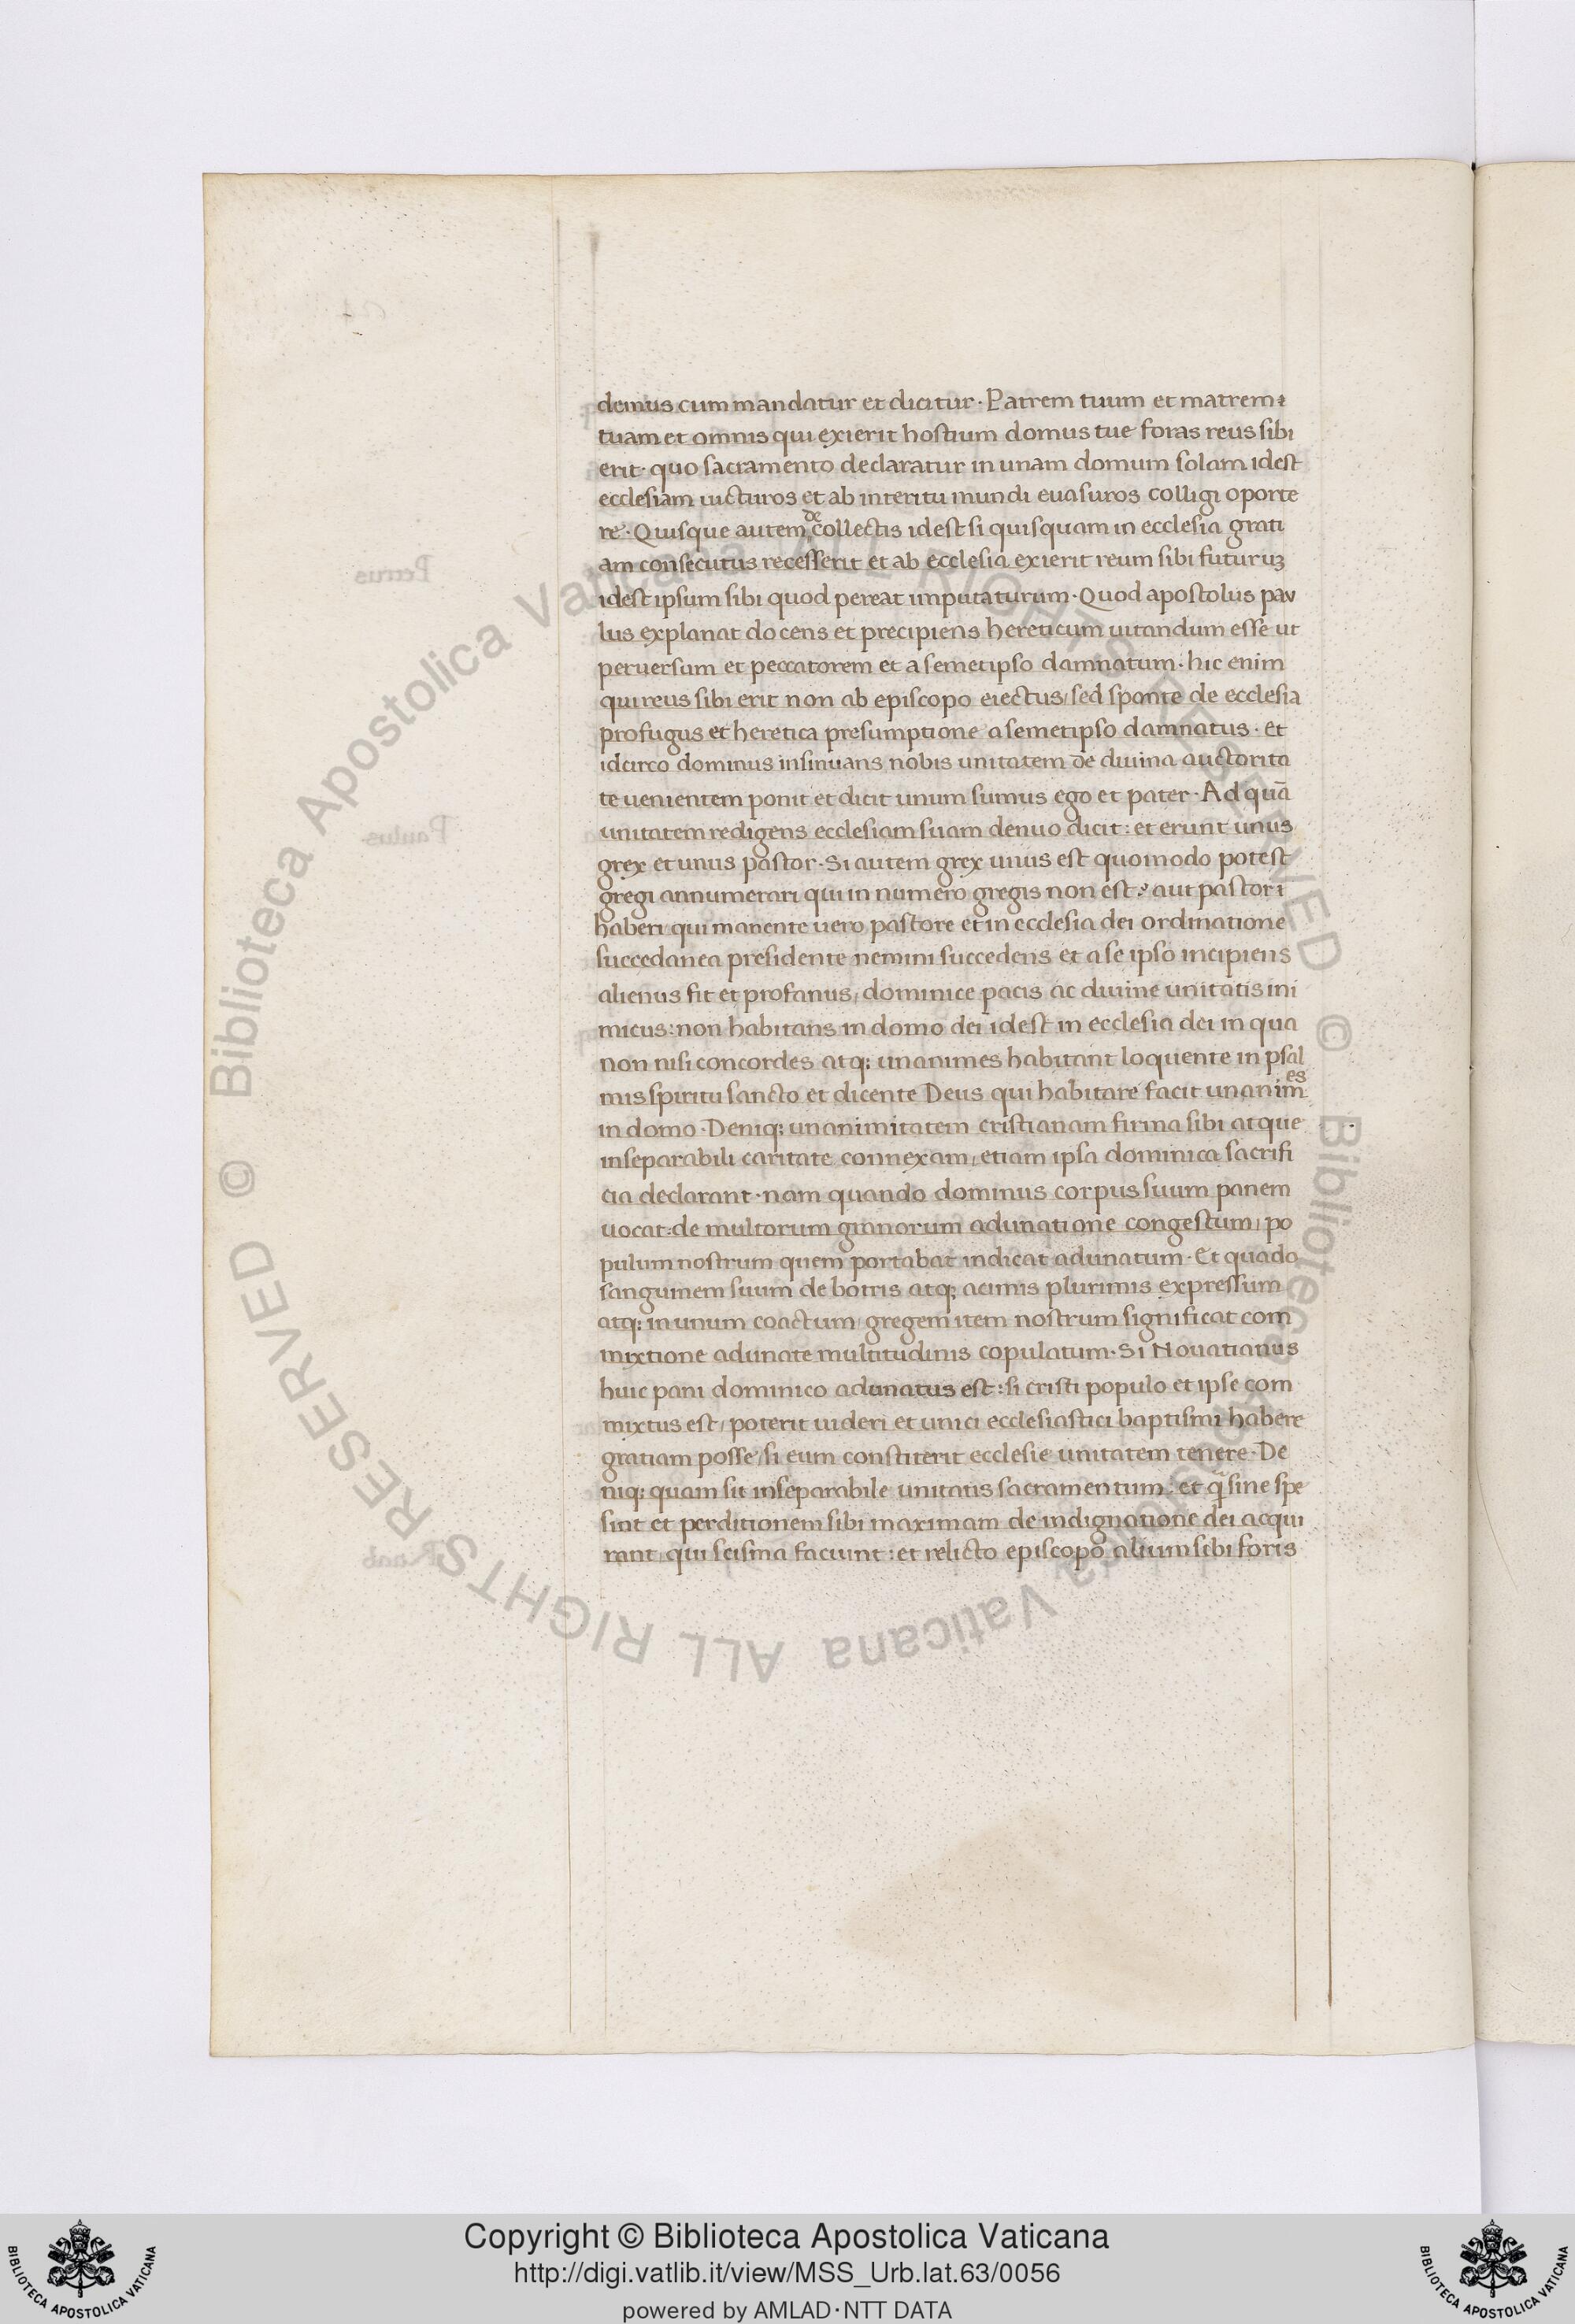 demus cum mandatur et dicitur · Patrem tuum et matrem
tuam et omnis qui exierit hostium domus tue foras reus sibi
erit · quo sacramento declaratur in unam domum solam idest
ecclesiam uicturos et ab interitu mundi euasuros colligi oporte
re · Quisque autem de collectis idest si quisquam in ecclesia grati
am consecutus recesserit et ab ecclesia exierit reum sibi futuruꝫ
idest ipsum sibi quod pereat imputaturum · Quod apostolus pau
lus explanat docens et precipiens hereticum uitandum esse ut
peruersum et peccatorem et a semetipso damnatum · hic enim
qui reus sibi erit non ab episcopo eiectus / sed sponte de ecclesia
profugus et heretica presumptione a semetipso damnatus · et
idcirco dominus insinuans nobis unitatem de diuina auctorita
te uenientem ponit et dicit unum sumus ego et pater · Ad quā
unitatem redigens ecclesiam suam denuo dicit : et erunt unus
grex et unus pastor · Si autem grex unus est quomodo potest
gregi annumerari qui in numero gregis non est ? aut pastor
haberi qui manente uero pastore et in ecclesia dei ordinatione
succedanea presidente nemini succedens et a se ipso incipiens
alienus fit et profanus / dominice pacis ac diuine unitatis ini
micus : non habitans in domo dei idest in ecclesia dei in qua
non nisi concordes atq; unanimes habitant loquente in psal
mis spiritu sancto et dicente Deus qui habitare facit unanimes
in domo · Deniq; unanimitatem cristianam firma sibi atque
inseparabili caritate connexam / etiam ipsa dominica sacrifi
cia declarant · nam quando dominus corpus suum panem
uocat : de multorum granorum adunatione congestum / po
pulum nostrum quem portabat indicat adunatum · Et quādo
sanguinem suum de botris atq; acinis plurimis expressum
atq; in unum coactum / gregem item nostrum significat com
mixtione adunate multitudinis copulatum · Si Nouatianus
huic pani dominico adunatus est : si cristi populo et ipse com
mixtus est / poterit uideri et unici ecclesiastici baptismi habere
gratiam posse / si eum constiterit ecclesie unitatem tenere · De
niq; quam sit inseparabile unitatis sacramentum : et q̄ sine spe
sint et perditionem sibi maximam de indignatione dei acqui
rant / qui scisma faciunt : et relicto episcopo alium sibi foris
© Biblioteca Apostolica Vaticana ALL RIGHTS RESERVED © Biblioteca Apostolica Vaticana ALL RIGHTS RESERVED
Copyright © Biblioteca Apostolica Vaticana
http://digi.vatlib.it/view/MSS_Urb.lat.63/0056
powered by AMLAD·NTT DATA
BIBLIOTECA APOSTOLICA VATICANA
BIBLIOTECA APOSTOLICA VATICANA